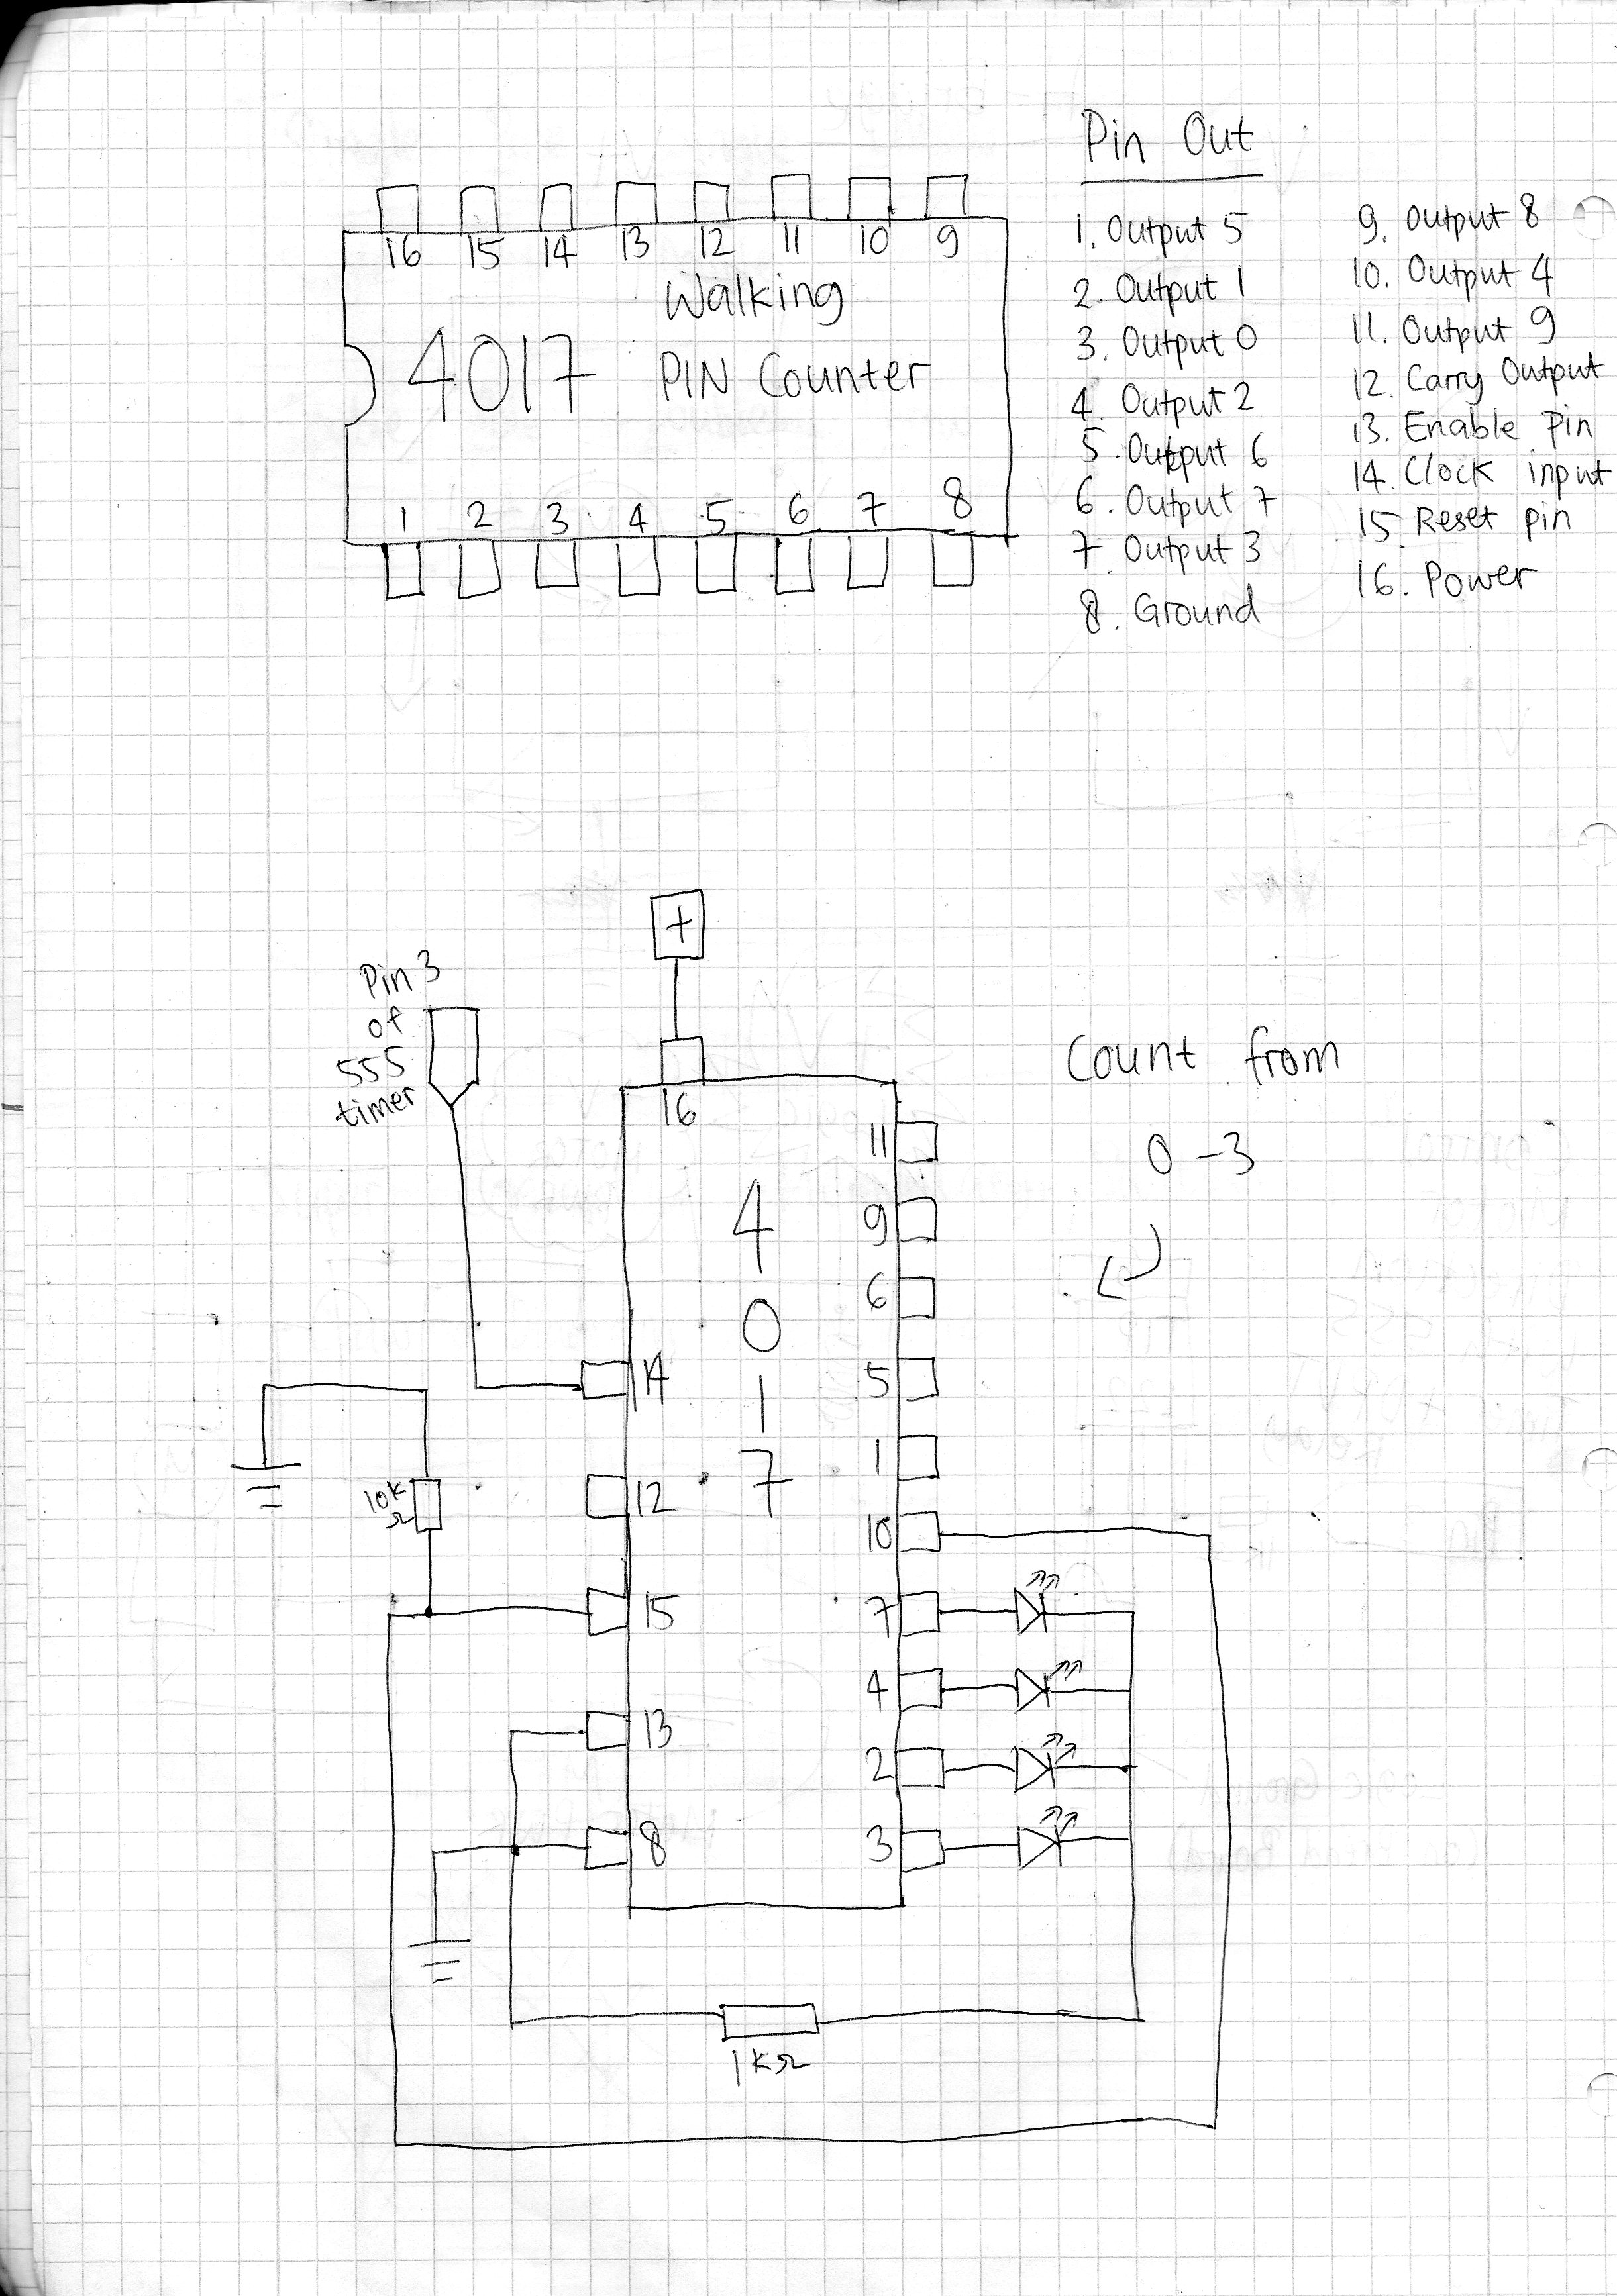 Pin Out
16 15 14 13 12 11 10 9
Walking
4017 PIN Counter
1 2 3 4 5 6 7 8
1. Output 5
2. Output 1
3. Output 0
4. Output 2
5. Output 6
6. Output 7
7. Output 3
8. Ground
9. Output 8
10. Output 4
11. Output 9
12. Carry Output
13. Enable Pin
14. Clock input
15 Reset pin
16. Power
+
Pin 3
of
555
timer
16
4
0
1
7
14
12
15
13
8
11
9
6
5
1
10
7
4
2
3
10K
Ω
1KΩ
Count from
0 - 3